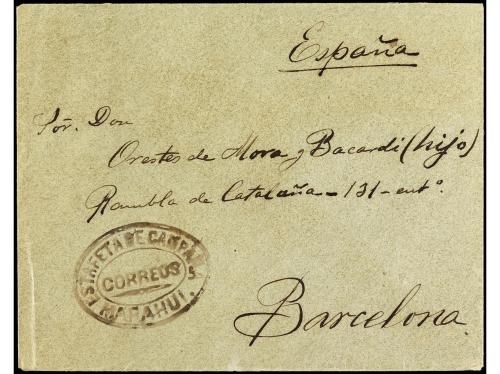 España
Sōr. Don
Orestes de Mora y Bacardi (hijo)
Rambla de Cataluña - 131 - entº.
ESTAFETA DE CAMPAÑA
CORREOS
MARAHUI.
Barcelona